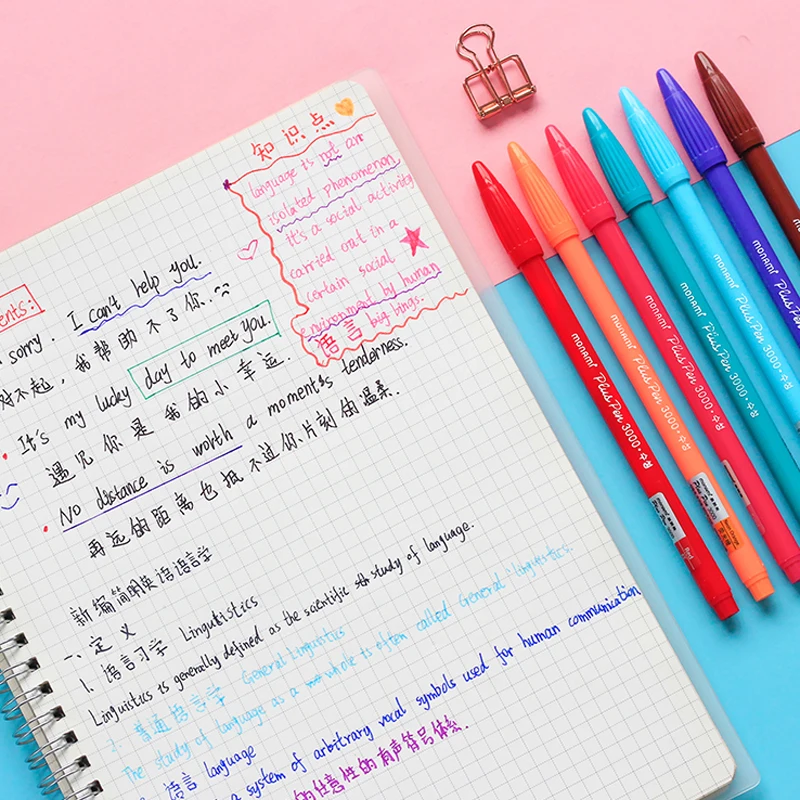 知识点
language is not an
isolated phenomenon
it's a social activity
carried out in a
certain social
environment by human
语言 big bings.
ents:
sorry. I can't help you.
对不起，我帮助不了你.
It's my lucky day to meet you.
遇见你是我的小幸运.
No distance is worth a moment's tenderness.
再远的距离也抵不过你片刻的温柔.
新编简明英语语言学
一、定义
1. 语言习学 Linguistics
Linguistics is generally defined as the scientific study of language.
2. 普通语言学 General Linguistics
The study of language as a whole is often called General linguistics.
语言 language
a system of arbitrary vocal symbols used for human communication
的任意性的有声符号体系.
monami Plus Pen 3000·수성
monami Plus Pen 3000·수성
monami Plus Pen 3000·수성
monami Plus Pen 3000·수성
monami Plus Pen 3000·수성
monami Plus Pen
monami
Red